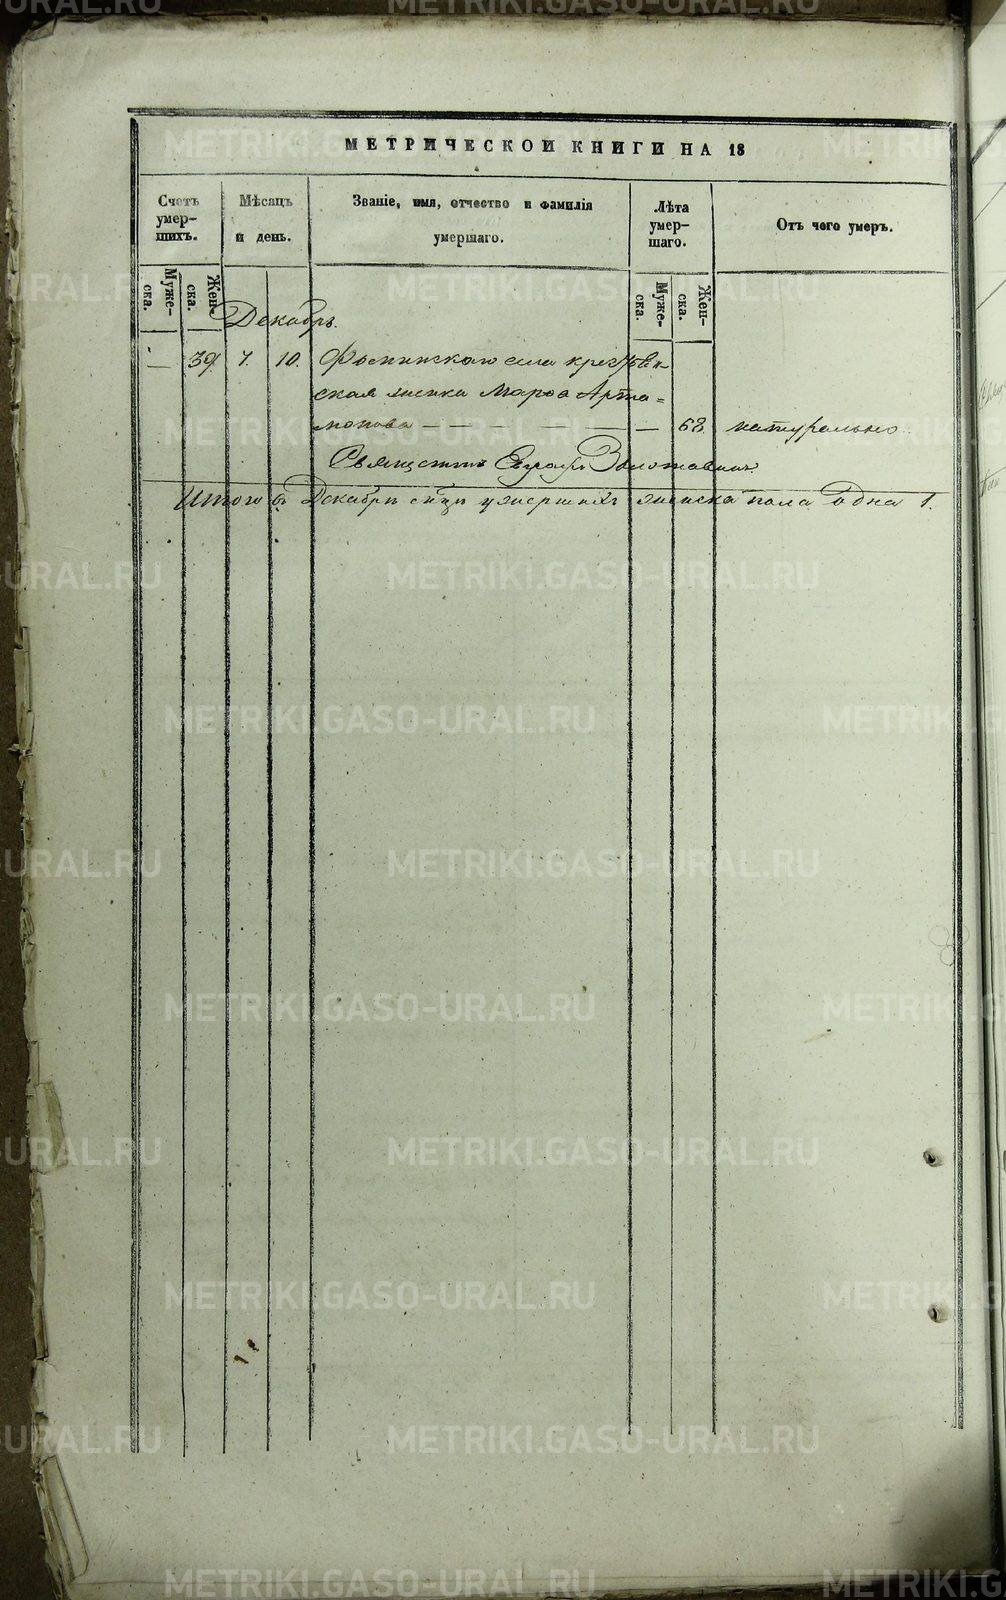 МЕТРИЧЕСКОЙ КНИГИ НА 18
Счетъ умер-шихъ.
Мѣсяцъ и день.
Званіе, имя, отчество и фамилія умершаго.
Лѣта умер-шаго.
Отъ чего умеръ.
Муже-ска.
Жен-ска.
Муже-ска.
Жен-ска.
Декабрь.
— 39. 7. 10. Фоминскаго села крестьян
ская женка Марѳа Арта=
монова — — — — — — 68. натурально.
Священникъ
Итого въ Декабрѣ сицѣ умершихъ женска пола одна 1.
METRIKI.GASO-URAL.RU